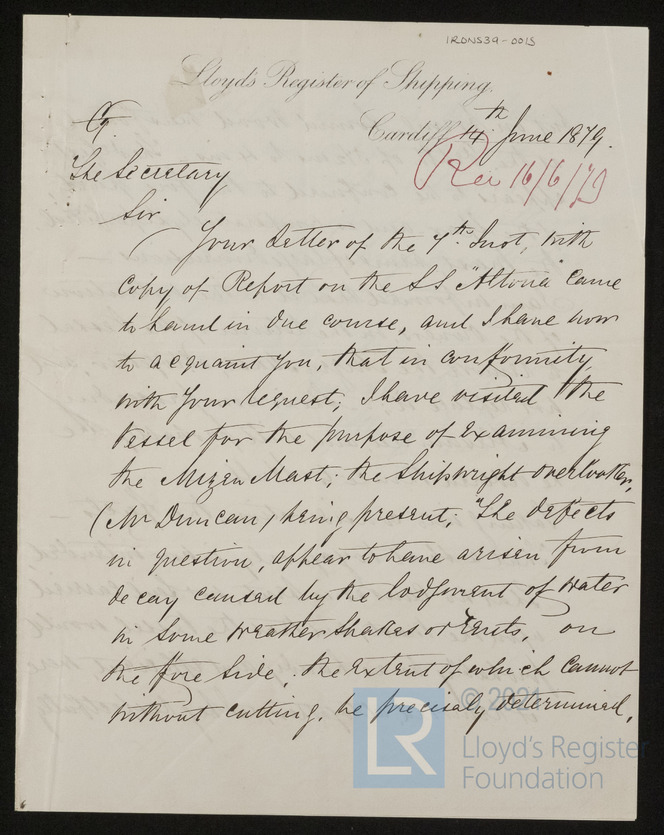 IRONS39-0015
Lloyd's Register of Shipping,
Cardiff 14th June 1879.
Rec 16/6/79
The Secretary
Sir
Your Letter of the 7th Inst, with
Copy of Report on the SS "Altona" came
to hand in due course, and I have now
to acquaint you, that in conformity
with your request; I have visited the
Vessel for the purpose of examining
the Mizen Mast; the Shipwright overlooker,
(Mr Duncan) being present; "The defects
in question, appear to have arisen from
decay caused by the lodgment of water
in some weather shakes or rents, on
the fore side; the extent of which cannot
without cutting, be precisely determined,
© 2021
LR
Lloyd's Register
Foundation